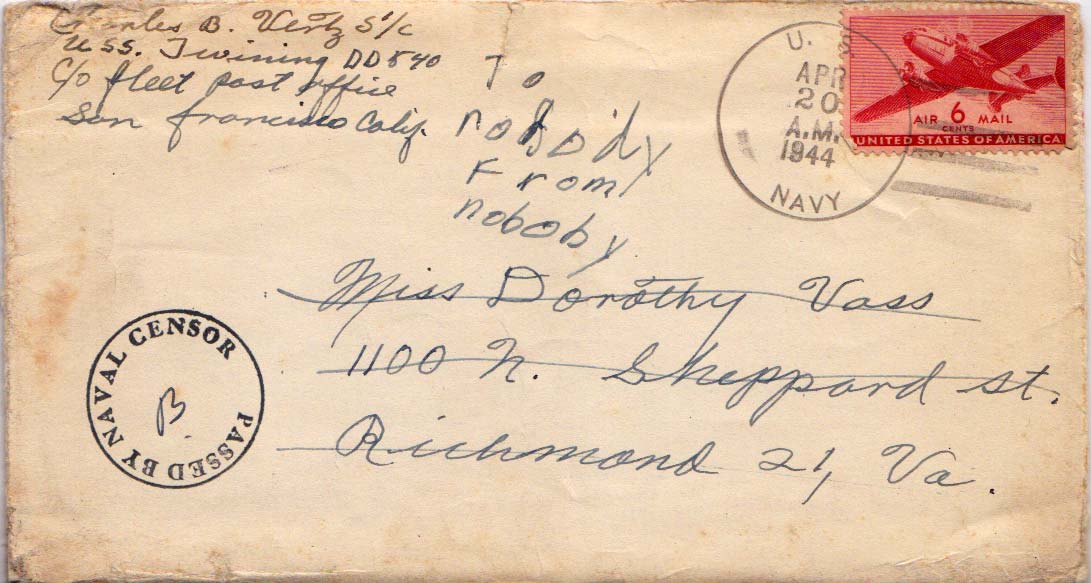 Charles B. Vertz S1/c
USS. Twining DD540
C/o fleet post office
San francisco Calif.
To
nobody
From
noboby
U. S.
APR
20
A.M.
1944
NAVY
AIR 6 MAIL
CENTS
UNITED STATES OF AMERICA
Miss Dorothy Vass
1100 N. Sheppard st.
Richmond 21, Va.
PASSED BY NAVAL CENSOR
B.